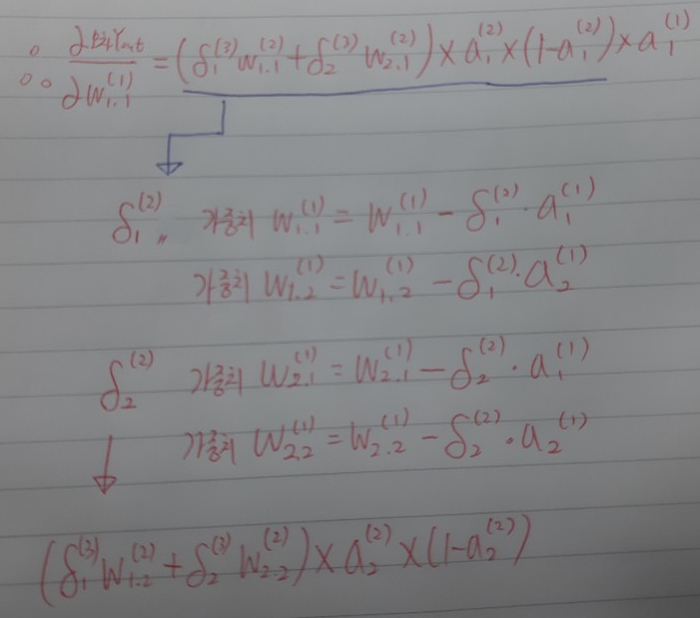 ∴ ∂ E ₜₒₜ / ∂W₁.₁⁽¹⁾ = (δ₁⁽³⁾W₁.₁⁽²⁾ + δ₂⁽³⁾W₂.₁⁽²⁾) × a₁⁽²⁾ × (1-a₁⁽²⁾) × a₁⁽¹⁾
δ₁⁽²⁾〃 가중치 W₁.₁⁽¹⁾ = W₁.₁⁽¹⁾ - δ₁⁽²⁾ · a₁⁽¹⁾
가중치 W₁.₂⁽¹⁾ = W₁.₂⁽¹⁾ - δ₁⁽²⁾ · a₂⁽¹⁾
δ₂⁽²⁾ 가중치 W₂.₁⁽¹⁾ = W₂.₁⁽¹⁾ - δ₂⁽²⁾ · a₁⁽¹⁾
가중치 W₂.₂⁽¹⁾ = W₂.₂⁽¹⁾ - δ₂⁽²⁾ · a₂⁽¹⁾
(δ₁⁽³⁾W₁.₂⁽²⁾ + δ₂⁽³⁾W₂.₂⁽²⁾) × a₂⁽²⁾ × (1-a₂⁽²⁾)